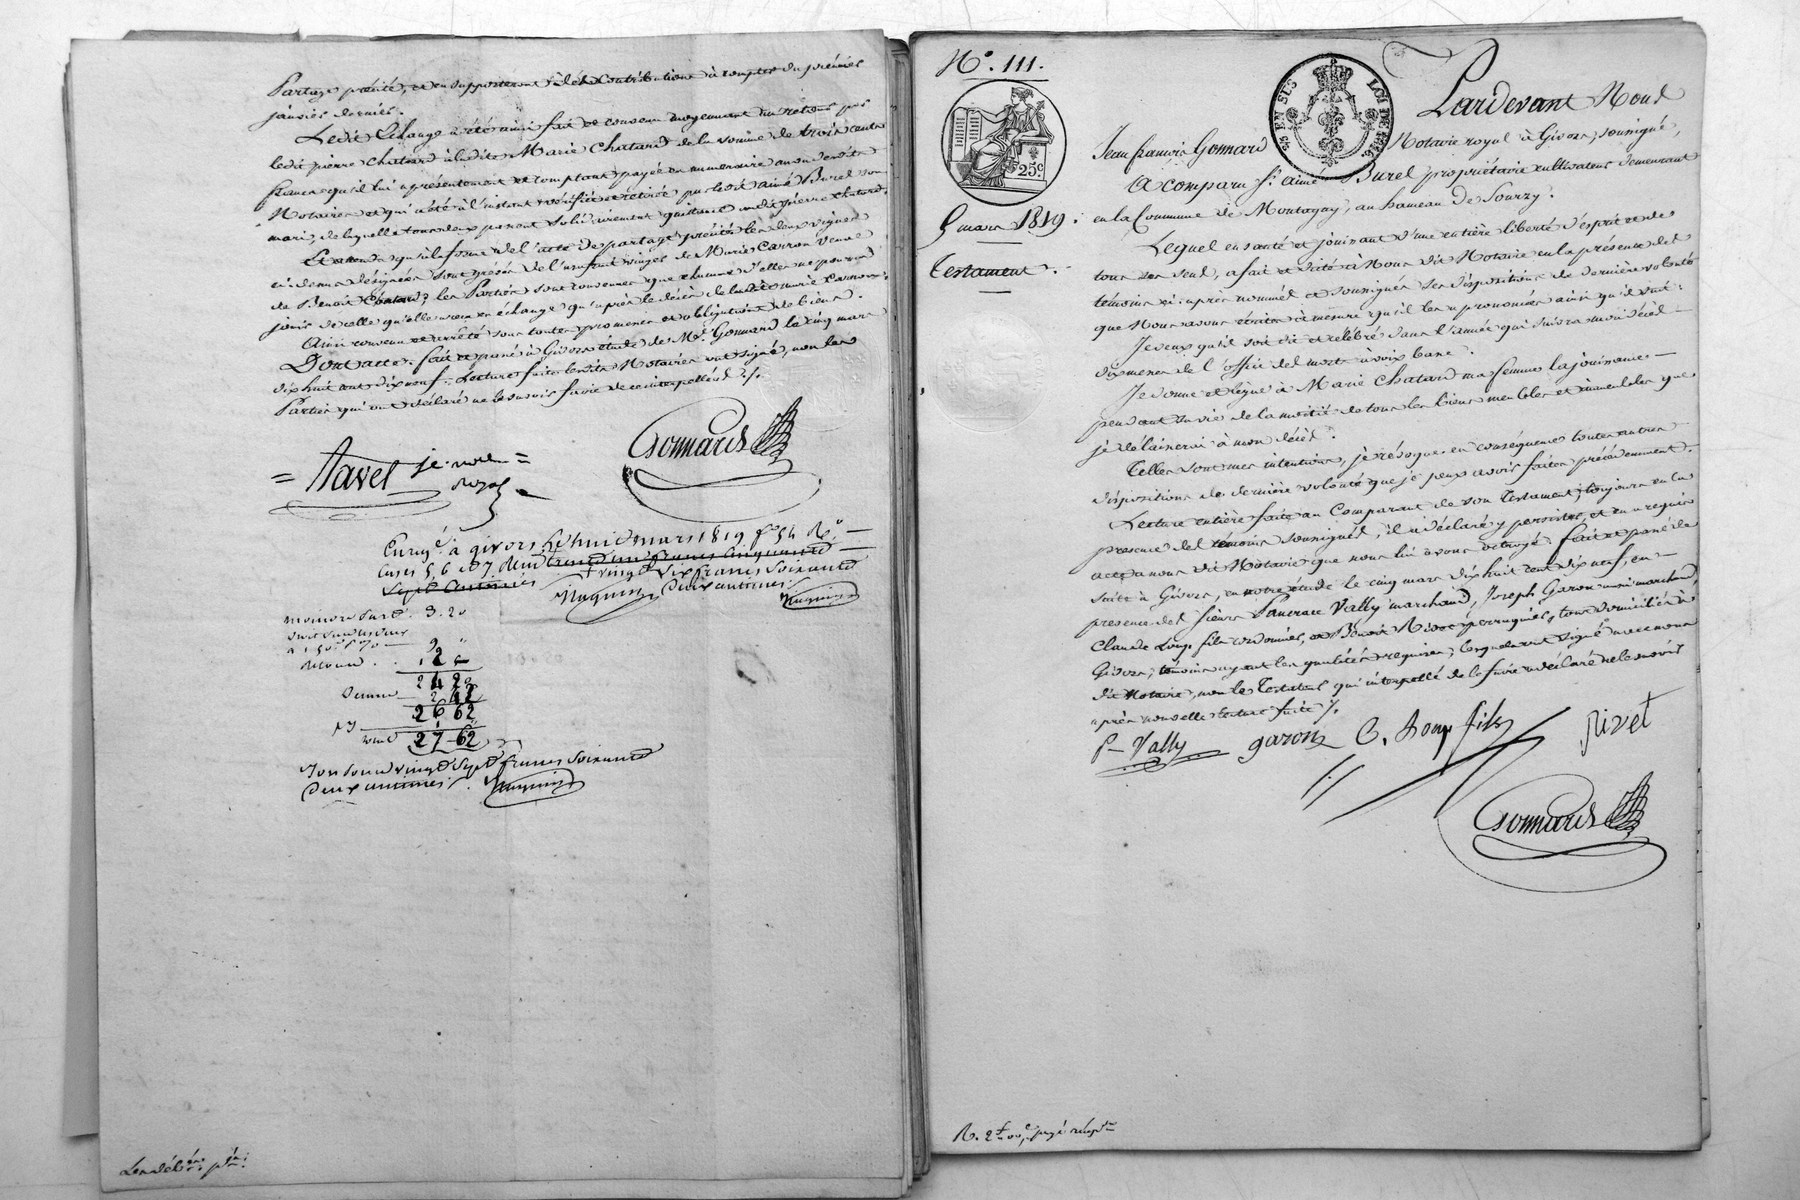 Partage précité, et en supporteront les contributions à compter du premier
janvier dernier.
Ledit Echange a été ainsi fait et convenu moyennant un retour par
ledit pierre Chatard à ladite Marie Chatard de la somme de trois cents
francs qu'il lui a présentement et comptant payée en numéraire au vu desdits
Notaires et qui a été à l'instant vérifiée et retirée par ledit aimé Burel son
mari, de laquelle tous deux passent solidairement quittance audit pierre chatard.
Et attendu qu'à la forme de l'acte de partage précité les deux vignes
ci-dessus désignées sont grevées de l'usufruit viager de Marie Carron Veuve
de Benoit Chatard, les Parties sont convenues que chacune d'elles ne pourra
jouir de celle qu'elle reçoit en échange qu'après le décès de ladite marie Carron.
Ainsi convenu et arrêté sous toutes promesses et obligations de biens.
Dont acte. fait et passé à Givors étude de Me. Gonnard le cinq mars
dix huit cent dix neuf. Lecture faite lesdits Notaires ont signé, non les
Parties qui ont déclaré ne le savoir faire de ce interpellées ./.
= Navet
Gonnard
Enregé. à givors le huit mars 1819 fo 54 Ro.
Cases 5, 6 et 7 reçu
vingt six francs soixante
deux centimes
3. 20
retour . . 12
24 20
2 42
26 62
1
27 62
vingt sept francs soixante
deux centimes.
No. 111.
25c
5 mars 1819.
Testament.
Pardevant Nous
Jean françois Gonnard Notaire royal à Givors, soussigné,
A comparu Sr. aimé Burel propriétaire cultivateur demeurant
en la Commune de Montagny, au hameau de Sourzy.
Lequel en santé et jouissant d'une entière liberté d'esprit et de
tous ses sens, a fait et dicté à Nous dit Notaire en la présence des
témoins ci-après nommés et soussignés ses dispositions de dernière volonté
que Nous avons écrites à mesure qu'il les a prononcées ainsi qu'il suit :
Je veux qu'il soit dit et célébré dans l'année qui suivra mon décès
dix messes de l'office des morts à voix basse.
Je donne et lègue à Marie Chatard ma femme la jouissance
pendant sa vie de la moitié de tous les biens meubles et immeubles que
je délaisserai à mon décès.
Telles sont mes intentions, je révoque en conséquence toutes autres
dispositions de dernière volonté que je peux avoir faites précédemment.
Lecture entière faite au Comparant de son Testament, toujours en la
présence des témoins soussignés, il a déclaré y persister, et en a requis
acte à nous dit Notaire que nous lui avons octroyé. fait et passé le
soir à Givors, en notre étude le cinq mars dix huit cent dix neuf, en
présence des sieurs Pancrace Vally marchand, Joseph Garon aussi marchand,
Claude Loup fils cordonnier, et Benoit Rivet perruquier, tous domiciliés à
Givors, témoins ayant les qualités requises, lesquels ont signé avec nous
dit Notaire, non le Testateur qui interpellé de le faire a déclaré ne le savoir
après nouvelle lecture faite ./.
P Vally garon C. Loup fils Rivet
Gonnard